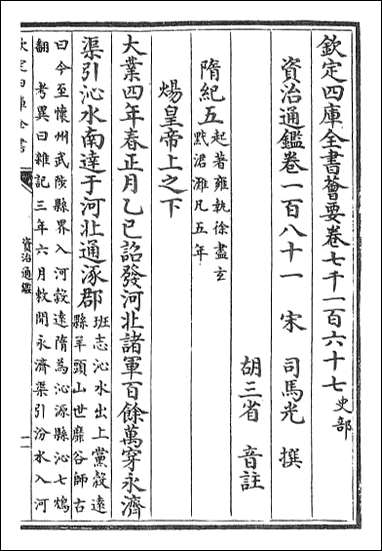 欽定四庫全書薈要卷七千一百六十七 史部
資治通鑑卷一百八十一
宋 司馬光 撰
胡三省 音註
隋紀五 起著雍執徐盡玄
黓涒灘凡五年
煬皇帝上之下
大業四年春正月乙巳詔發河北諸軍百餘萬穿永濟
渠引沁水南達于河北通涿郡 班志沁水出上黨穀遠
縣羊頭山世靡谷師古
曰今至懷州武陟縣界入河穀遠隋為沁源縣沁七鴆
翻 考異曰雜記三年六月敕開永濟渠引汾水入河
欽定四庫全書
資治通鑑
一